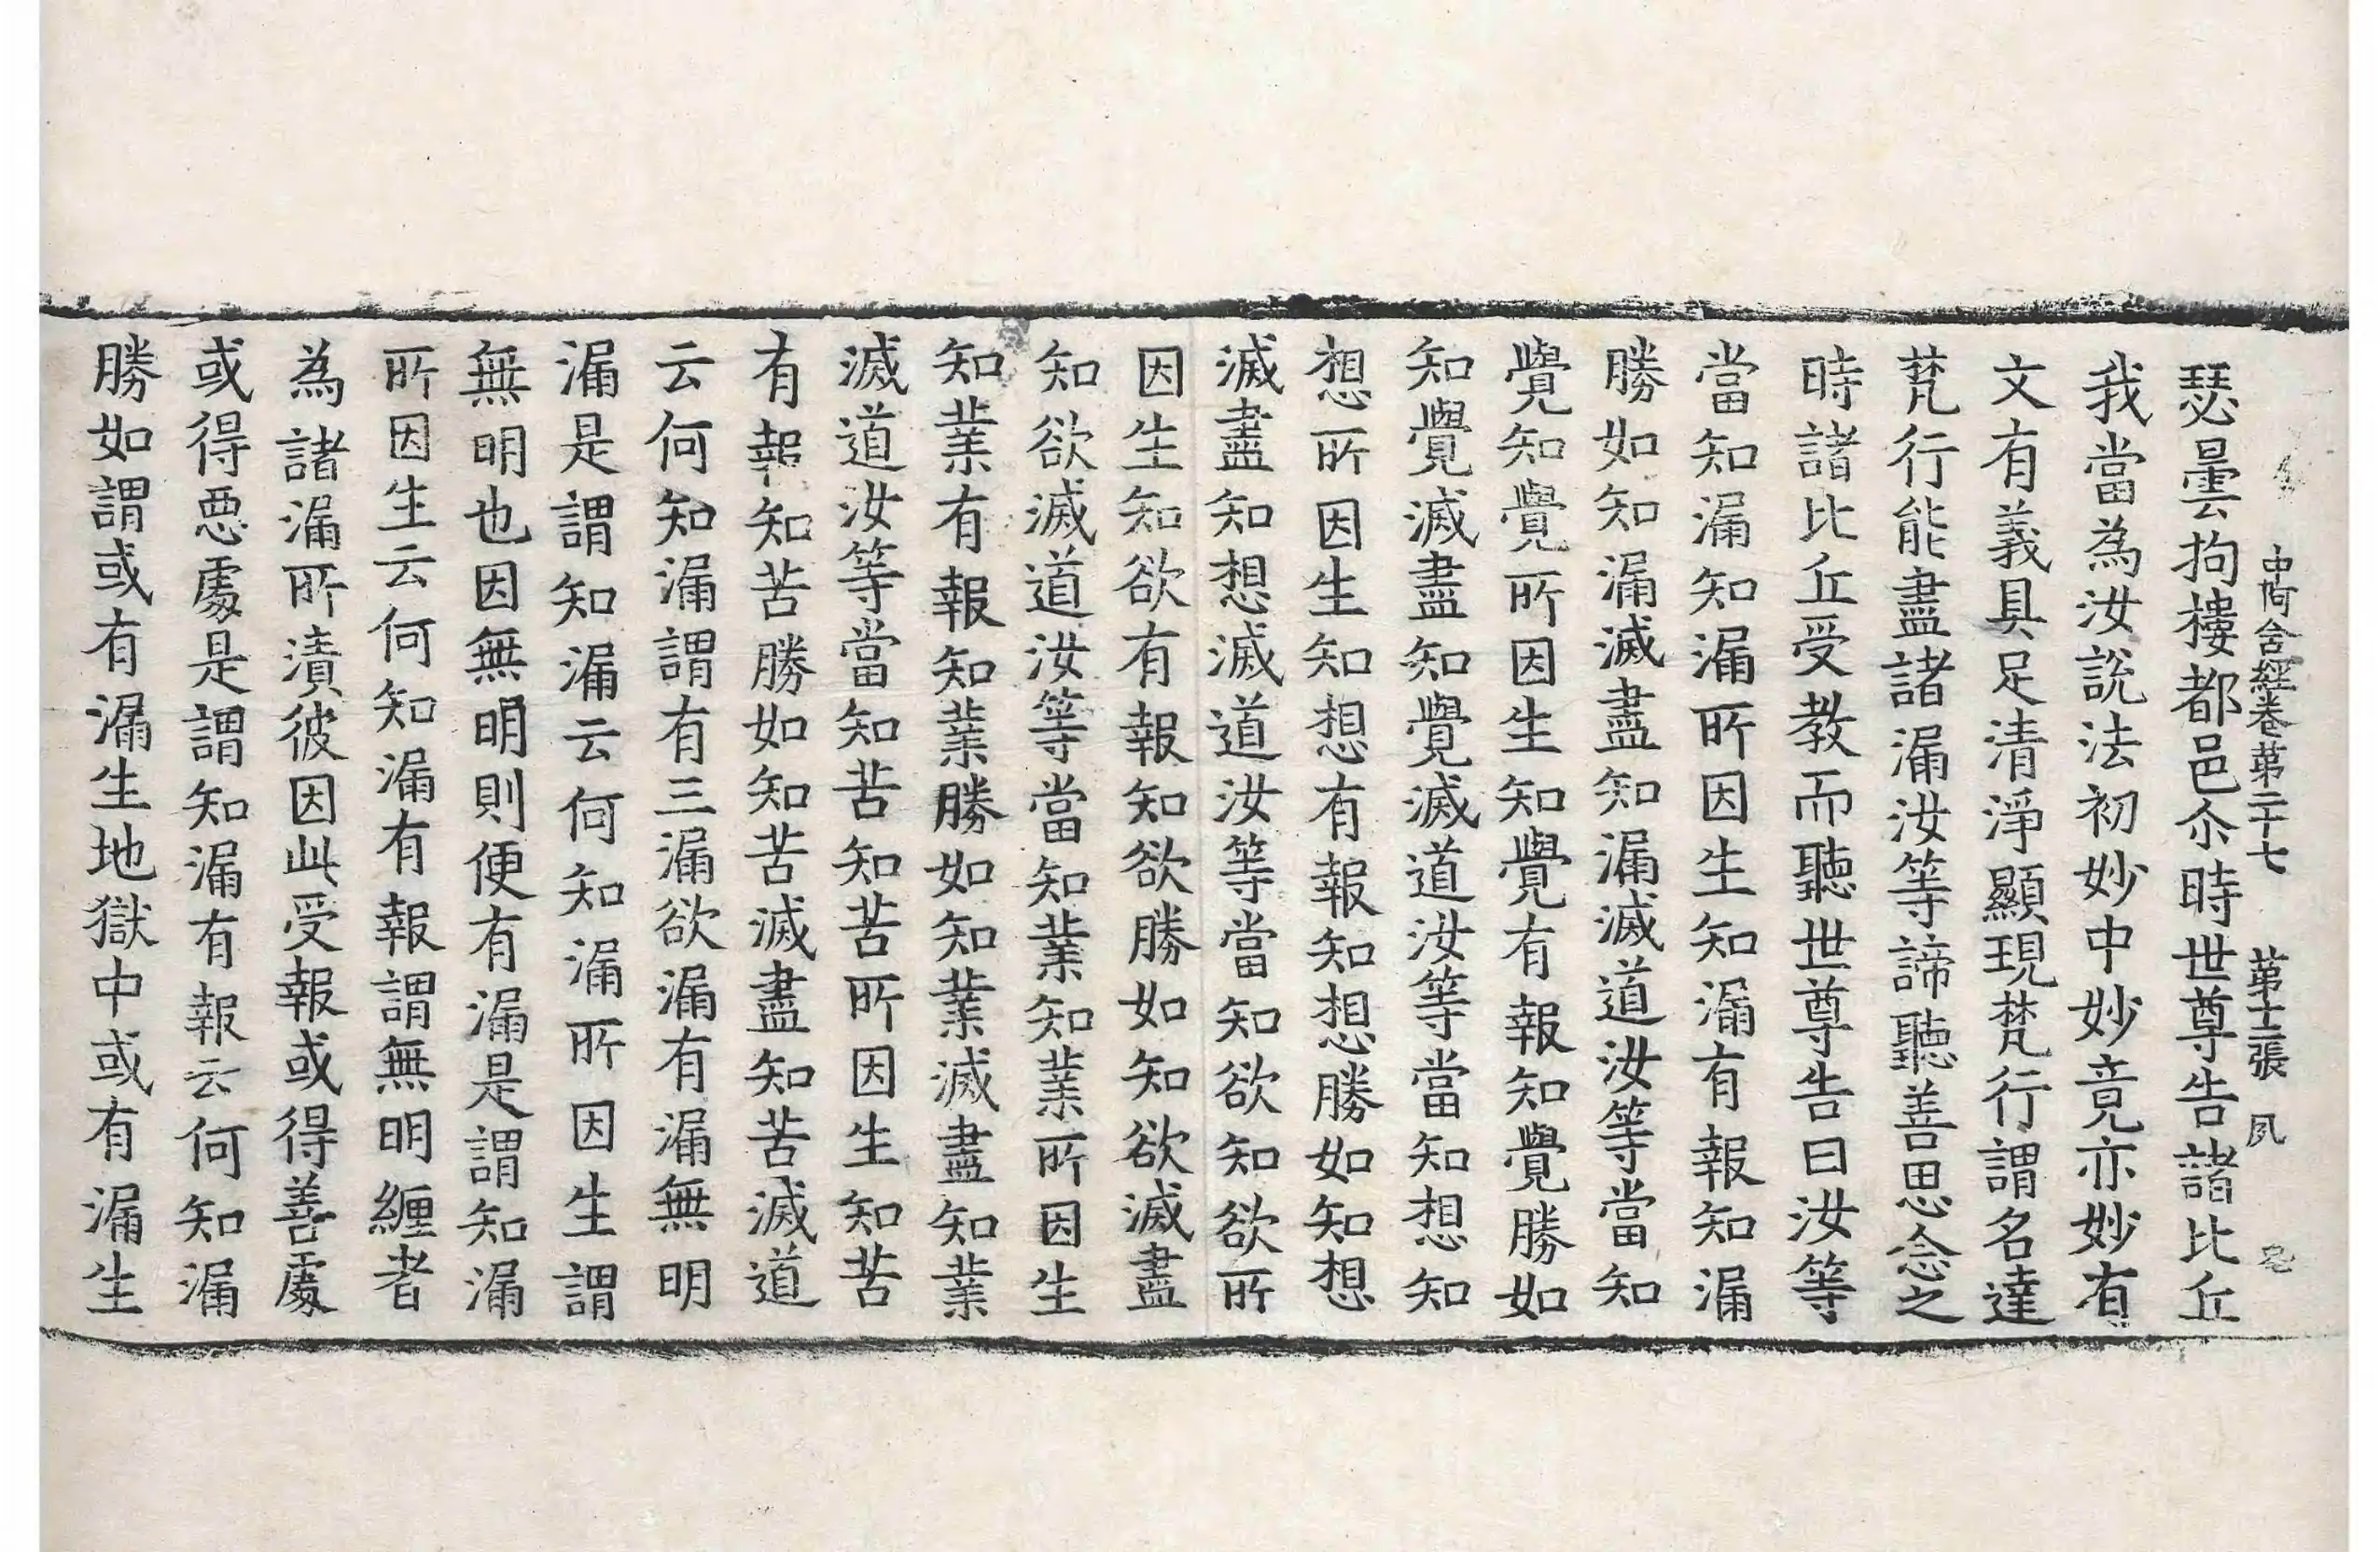 中阿含經卷第二十七 第十二張 夙
瑟曇拘樓都邑尒時世尊告諸比丘
我當為汝說法初妙中妙竟亦妙有
文有義具足清淨顯現梵行謂名達
梵行能盡諸漏汝等諦聽善思念之
時諸比丘受教而聽世尊告曰汝等
當知漏知漏所因生知漏有報知漏
勝如知漏滅盡知漏滅道汝等當知
覺知覺所因生知覺有報知覺勝如
知覺滅盡知覺滅道汝等當知想知
想所因生知想有報知想勝如知想
滅盡知想滅道汝等當知欲知欲所
因生知欲有報知欲勝如知欲滅盡
知欲滅道汝等當知業知業所因生
知業有報知業勝如知業滅盡知業
滅道汝等當知苦知苦所因生知苦
有報知苦勝如知苦滅盡知苦滅道
云何知漏謂有三漏欲漏有漏無明
漏是謂知漏云何知漏所因生謂
無明也因無明則便有漏是謂知漏
所因生云何知漏有報謂無明纏者
為諸漏所漬彼因此受報或得善處
或得惡處是謂知漏有報云何知漏
勝如謂或有漏生地獄中或有漏生